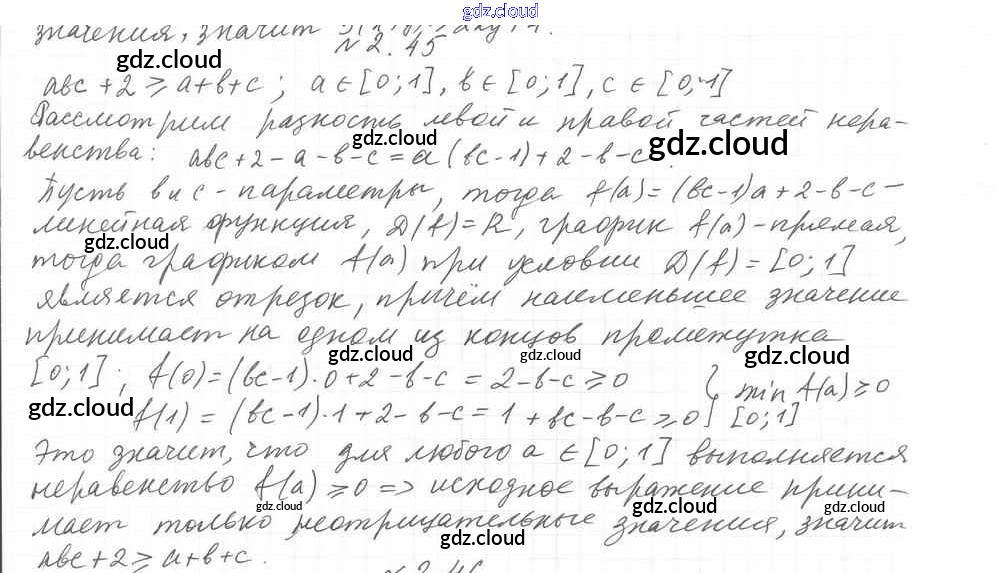 gdz.cloud
значения, значит
N 2.45
gdz.cloud
abc + 2 ⩾ a+b+c ; a ∈ [0;1], b ∈ [0;1], c ∈ [0;1]
Рассмотрим разность левой и правой частей нера-
gdz.cloud gdz.cloud
венства: abc+2-a-b-c = a(bc-1)+2-b-c.
Пусть b и c - параметры, тогда f(a)=(bc-1)a+2-b-c -
линейная функция, D(f)=R, график f(a) - прямая,
gdz.cloud
тогда графиком f(a) при условии D(f)=[0;1]
является отрезок, причём наименьшее значение
принимает на одном из концов промежутка
gdz.cloud gdz.cloud gdz.cloud
[0;1]; f(0)=(bc-1)·0+2-b-c = 2-b-c ⩾ 0 } min f(a) ⩾ 0
gdz.cloud
f(1) = (bc-1)·1+2-b-c = 1+bc-b-c ⩾ 0 } [0;1]
Это значит, что для любого a ∈ [0;1] выполняется
неравенство f(a) ⩾ 0 => исходное выражение прини-
gdz.cloud gdz.cloud
мает только неотрицательные значения, значит
gdz.cloud
abc+2 ⩾ a+b+c.
gdz.cloud